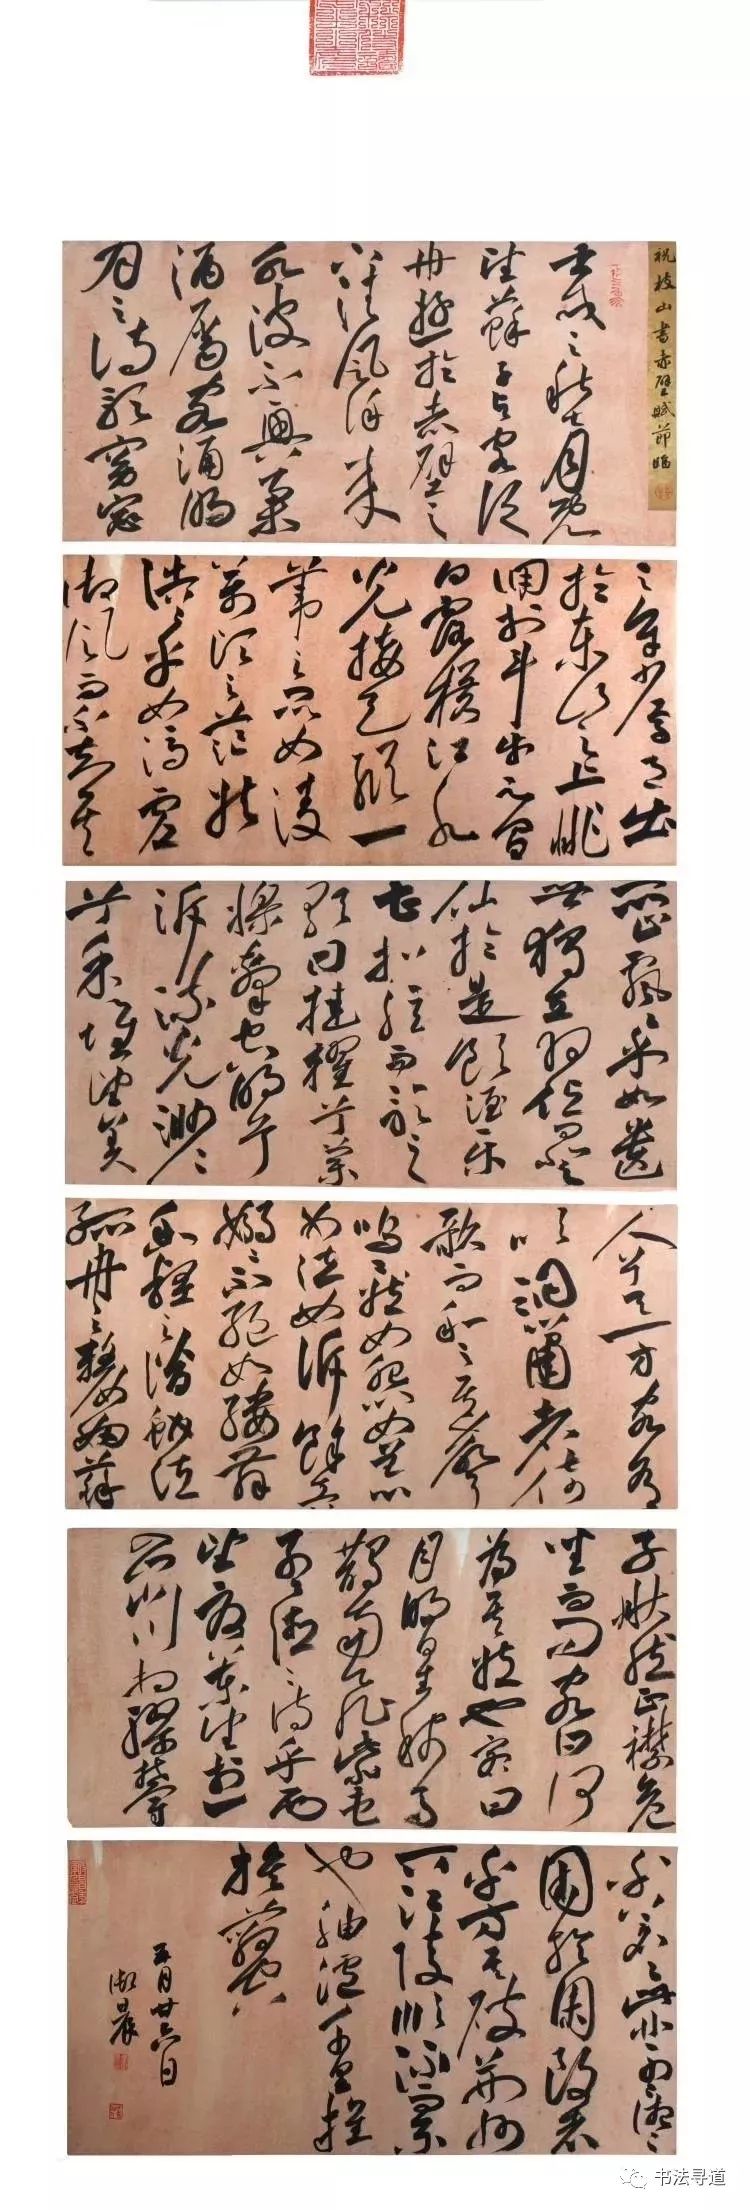 祝枝山書赤壁賦節臨
壬戌之秋七月既
望蘇子与客泛
舟遊於赤壁之
下清風徐来
水波不興舉
酒屬客誦明
月之詩歌窈窕
之章少焉月出
於東山之上徘
徊於斗牛之間
白露橫江水
光接天縱一
葦之所如凌
萬頃之茫然
浩浩乎如馮虛
御風而不知其
所止飄飄乎如遺
世獨立羽化而登
仙於是飲酒樂
甚扣舷而歌之
歌曰桂櫂兮蘭
槳擊空明兮
泝流光渺渺
兮予懷望美
人兮天一方客有
吹洞簫者倚
歌而和之其聲
嗚嗚然如怨如慕
如泣如訴餘音
嫋嫋不絕如縷舞
幽壑之潛蛟泣
孤舟之嫠婦蘇
子愀然正襟危
坐而問客曰何
為其然也客曰
月明星稀烏
鵲南飛此非曹
孟德之詩乎西
望夏口東望武
昌山川相繆鬱乎
蒼蒼此非孟德之
困於周郎者
乎方其破荊州
下江陵順流而東
也舳艫千里旌
旗蔽空
五月廿六日
书法寻道